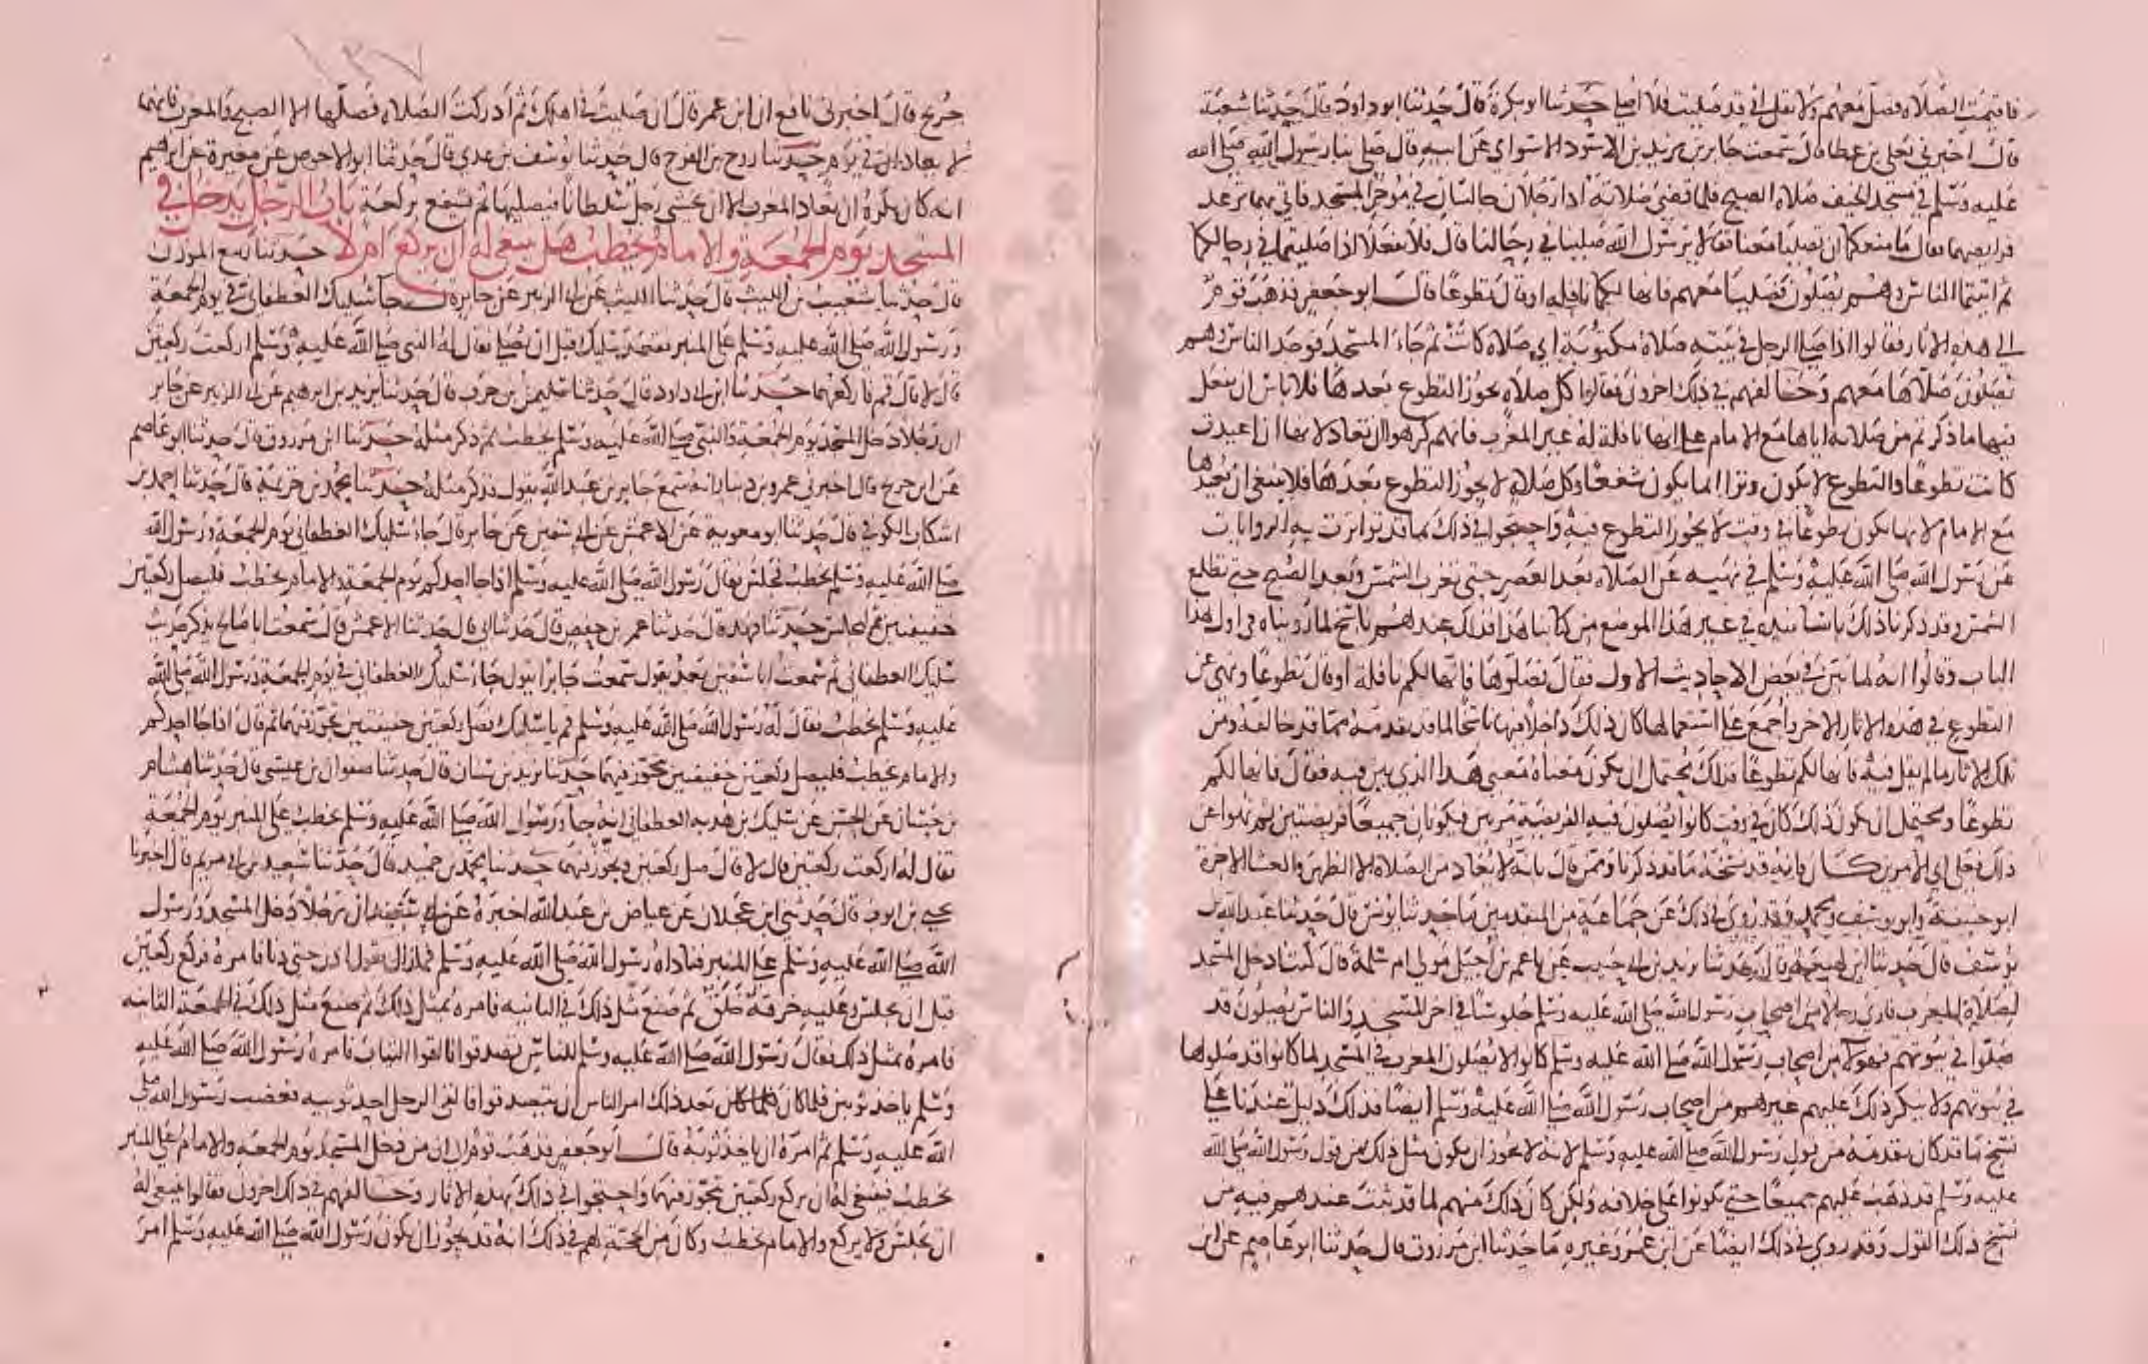 فاقيمت الصلاة فصل معهم ولا تقل اني قد صليت فلا اصلي حدثنا ابو بكرة قال حدثنا ابو داود قال حدثنا شعبة
قال اخبرني يعلى بن عطا قال سمعت جابر بن يزيد بن الاسود السواي عن ابيه قال صلى بنا رسول الله صلى الله
عليه وسلم في مسجد الخيف صلاة الصبح فلما قضى صلاته اذا رجلان جالسان في موخر المسجد فاتي بهما ترعد
فرايصهما فقال ما منعكما ان تصليا معنا فقالا يرسول الله صلينا في رحالنا قال فلا تفعلا اذا صليتما في رحالكما
ثم اتيتما الناس وهم يصلون فصليا معهم فانها لكما نافلة او قال تطوعا قال ابو جعفر فذهب قوم
الى هذه الاثار فقالوا اذا صلى الرجل في بيته صلاة مكتوبة اي صلاة كانت ثم جاء المسجد فوجد الناس وهم
يصلون صلاها معهم وخالفهم في ذلك اخرون فقالوا كل صلاة يجوز التطوع بعدها فلا باس ان يفعل
فيها ما ذكرتم من صلاته اياها مع الامام على انها نافلة له غير المغرب فانهم كرهوا ان تعاد لانها ان اعيدت
كانت تطوعا والتطوع لا يكون وترا انما يكون شفعا وكل صلاة لا يجوز التطوع بعدها فلا ينبغي ان يعيدها
مع الامام لانها تكون تطوعا في وقت لا يجوز التطوع فيه واحتجوا في ذلك بما قد تواترت به الروايات
عن رسول الله صلى الله عليه وسلم في نهيه عن الصلاة بعد العصر حتى تغرب الشمس وبعد الصبح حتى تطلع
الشمس وقد ذكرنا ذلك باسانيده في غير هذا الموضع من كتابنا هذا فذلك عندهم ناسخ لما رويناه في اول هذا
الباب وقالوا انه لما بين في بعض الاحاديث الاول فقال فصلوها فانها لكم نافلة او قال تطوعا ونهي عن
التطوع في هذه الاثار الاخر واجمع على استعمالها كان ذلك داخلا فيها ناسخا لما قد تقدمه مما قد خالفه ومن
تلك الاثار ما لم يقل فيه فانها لكم تطوعا فذلك يحتمل ان يكون معناه معنى هذا الذي بين فيه فقال فانها لكم
تطوعا ويحتمل ان يكون ذلك كان في وقت كانوا يصلون فيه الفريضة مرتين فيكونان جميعا فريضتين ثم نهوا عن
ذلك فعلى اي الامرين كان فانه قد نسخه ما قد ذكرنا وممن قال بانه لا يعاد من الصلاة الا الظهر والعشا الاخرة
ابو حنيفة وابو يوسف ومحمد وقد روي في ذلك عن جماعة من المتقدمين ما حدثنا يونس قال حدثنا عبد الله بن
يوسف قال حدثنا ابن لهيعة قال حدثنا يزيد بن ابي حبيب عن ناعم بن اجيل مولى ام سلمة قال كنت ادخل المسجد
لصلاة المغرب فارى رجالا من اصحاب رسول الله صلى الله عليه وسلم جلوسا في اخر المسجد والناس يصلون قد
صلوا في بيوتهم فهولا من اصحاب رسول الله صلى الله عليه وسلم كانوا لا يصلون المغرب في المسجد لما كانوا قد صلوها
في بيوتهم ولا ينكر ذلك عليهم غيرهم من اصحاب رسول الله صلى الله عليه وسلم ايضا فذلك دليل عندنا على
نسخ ما قد كان تقدمه من قول رسول الله صلى الله عليه وسلم لانه لا يجوز ان يكون مثل ذلك من قول رسول الله صلى الله
عليه وسلم قد ذهب عليهم جميعا حتى يكونوا على خلافه ولكن كان ذلك منهم لما قد ثبت عندهم فيه من
نسخ ذلك القول وقد روي في ذلك ايضا عن ابن عمر وغيره ما حدثنا ابن مرزوق قال حدثنا ابو عاصم عن ابن
١٣٧
جريج قال اخبرني نافع ان ابن عمر قال ان صليت في اهلك ثم ادركت الصلاة فصلها الا الصبح والمغرب فانهما
لا يعادان في يوم حدثنا روح بن الفرج قال حدثنا يوسف بن عدي قال حدثنا ابو الاحوص عن مغيرة عن ابراهيم
انه كان يكره ان تعاد المغرب الا ان يخشى رجل سلطانا فيصليها ثم يشفع بركعة باب الرجل يدخل في
المسجد يوم الجمعة والامام يخطب هل ينبغي له ان يركع ام لا حدثنا ربيع الموذن
قال حدثنا شعيب بن الليث قال حدثنا الليث عن ابي الزبير عن جابر قال جا سليك الغطفاني في يوم الجمعة
ورسول الله صلى الله عليه وسلم على المنبر فقعد سليك قبل ان يصلي فقال له النبي صلى الله عليه وسلم اركعت ركعتين
قال لا قال قم فاركعهما حدثنا ابن ابي داود قال حدثنا سليمن بن حرب قال حدثنا يزيد بن ابرهيم عن ابي الزبير عن جابر
ان رجلا دخل المسجد يوم الجمعة والنبي صلى الله عليه وسلم يخطب ثم ذكر مثله حدثنا ابن مرزوق قال حدثنا ابو عاصم
عن ابن جريج قال اخبرني عمرو بن دينار انه سمع جابر بن عبد الله يقول فذكر مثله حدثنا محمد بن خزيمة قال حدثنا احمد بن
اشكاب الكوفي قال حدثنا ابو معوية عن الاعمش عن ابي سفين عن جابر قال جاء سليك الغطفاني يوم الجمعة ورسول الله
صلى الله عليه وسلم يخطب فجلس فقال رسول الله صلى الله عليه وسلم اذا جا احدكم يوم الجمعة والامام يخطب فليصل ركعتين
خفيفتين ثم ليجلس حدثنا فهد قال حدثنا عمر بن حفص قال حدثنا ابي قال حدثنا الاعمش قال سمعت ابا صالح يذكر حديث
سليك الغطفاني ثم سمعت ابا سفين بعد يقول سمعت جابرا يقول جاء سليك الغطفاني في يوم الجمعة ورسول الله صلى الله
عليه وسلم يخطب فقال له رسول الله صلى الله عليه وسلم قم يا سليك فصل ركعتين خفيفتين تجوز فيهما ثم قال اذا جا احدكم
والامام يخطب فليصل ركعتين خفيفتين يتجوز فيهما حدثنا يزيد بن سنان قال حدثنا صفوان بن عيسى قال حدثنا هشام
بن حسان عن الحسن عن سليك بن هدبه الغطفاني انه جا ورسول الله صلى الله عليه وسلم يخطب على المنبر يوم الجمعة
فقال له اركعت ركعتين قال لا قال صل ركعتين وتجوز فيهما حدثنا محمد بن حميد قال حدثنا سعيد بن ابي مريم قال اخبرنا
يحيى بن ايوب قال حدثني ابن عجلان عن عياض بن عبد الله اخبره عن ابي سعيد ان رجلا دخل المسجد ورسول
الله صلى الله عليه وسلم على المنبر فناداه رسول الله صلى الله عليه وسلم فما زال يقول ادن حتى دنا فامره فركع ركعتين
قبل ان يجلس وعليه خرقة خلق ثم صنع مثل ذلك في الثانيه فامره بمثل ذلك ثم صنع مثل ذلك في الجمعة الثالثه
فامره بمثل ذلك فقال رسول الله صلى الله عليه وسلم للناس تصدقوا فالقوا الثياب فامره رسول الله صلى الله عليه
وسلم ياخذ ثوبين فلما كان بعد ذلك امر الناس ان يتصدقوا فالقى الرجل احد ثوبيه فغضب رسول الله صلى
الله عليه وسلم ثم امره ان ياخذ ثوبه قال ابو جعفر فذهب قوم الى ان من دخل المسجد يوم الجمعه والامام على المنبر
يخطب فينبغي له ان يركع ركعتين يتجوز فيهما واحتجوا في ذلك بهذه الاثار وخالفهم في ذلك اخرون فقالوا ينبغي له
ان يجلس ولا يركع والامام يخطب وكان من الحجة لهم في ذلك انه قد يجوز ان يكون رسول الله صلى الله عليه وسلم امر